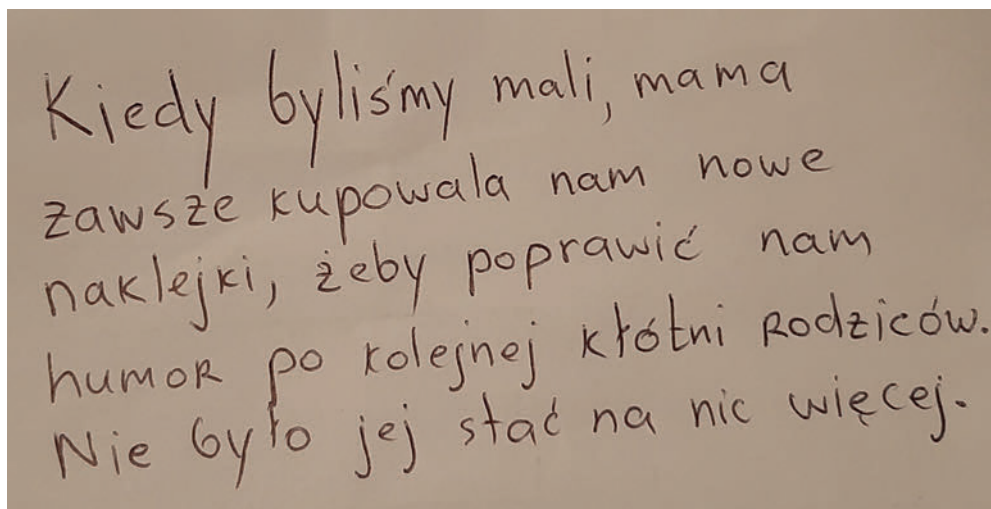 Kiedy byliśmy mali, mama
zawsze kupowala nam nowe
naklejki, żeby poprawić nam
humor po kolejnej kłótni rodziców.
Nie było jej stać na nic więcej.